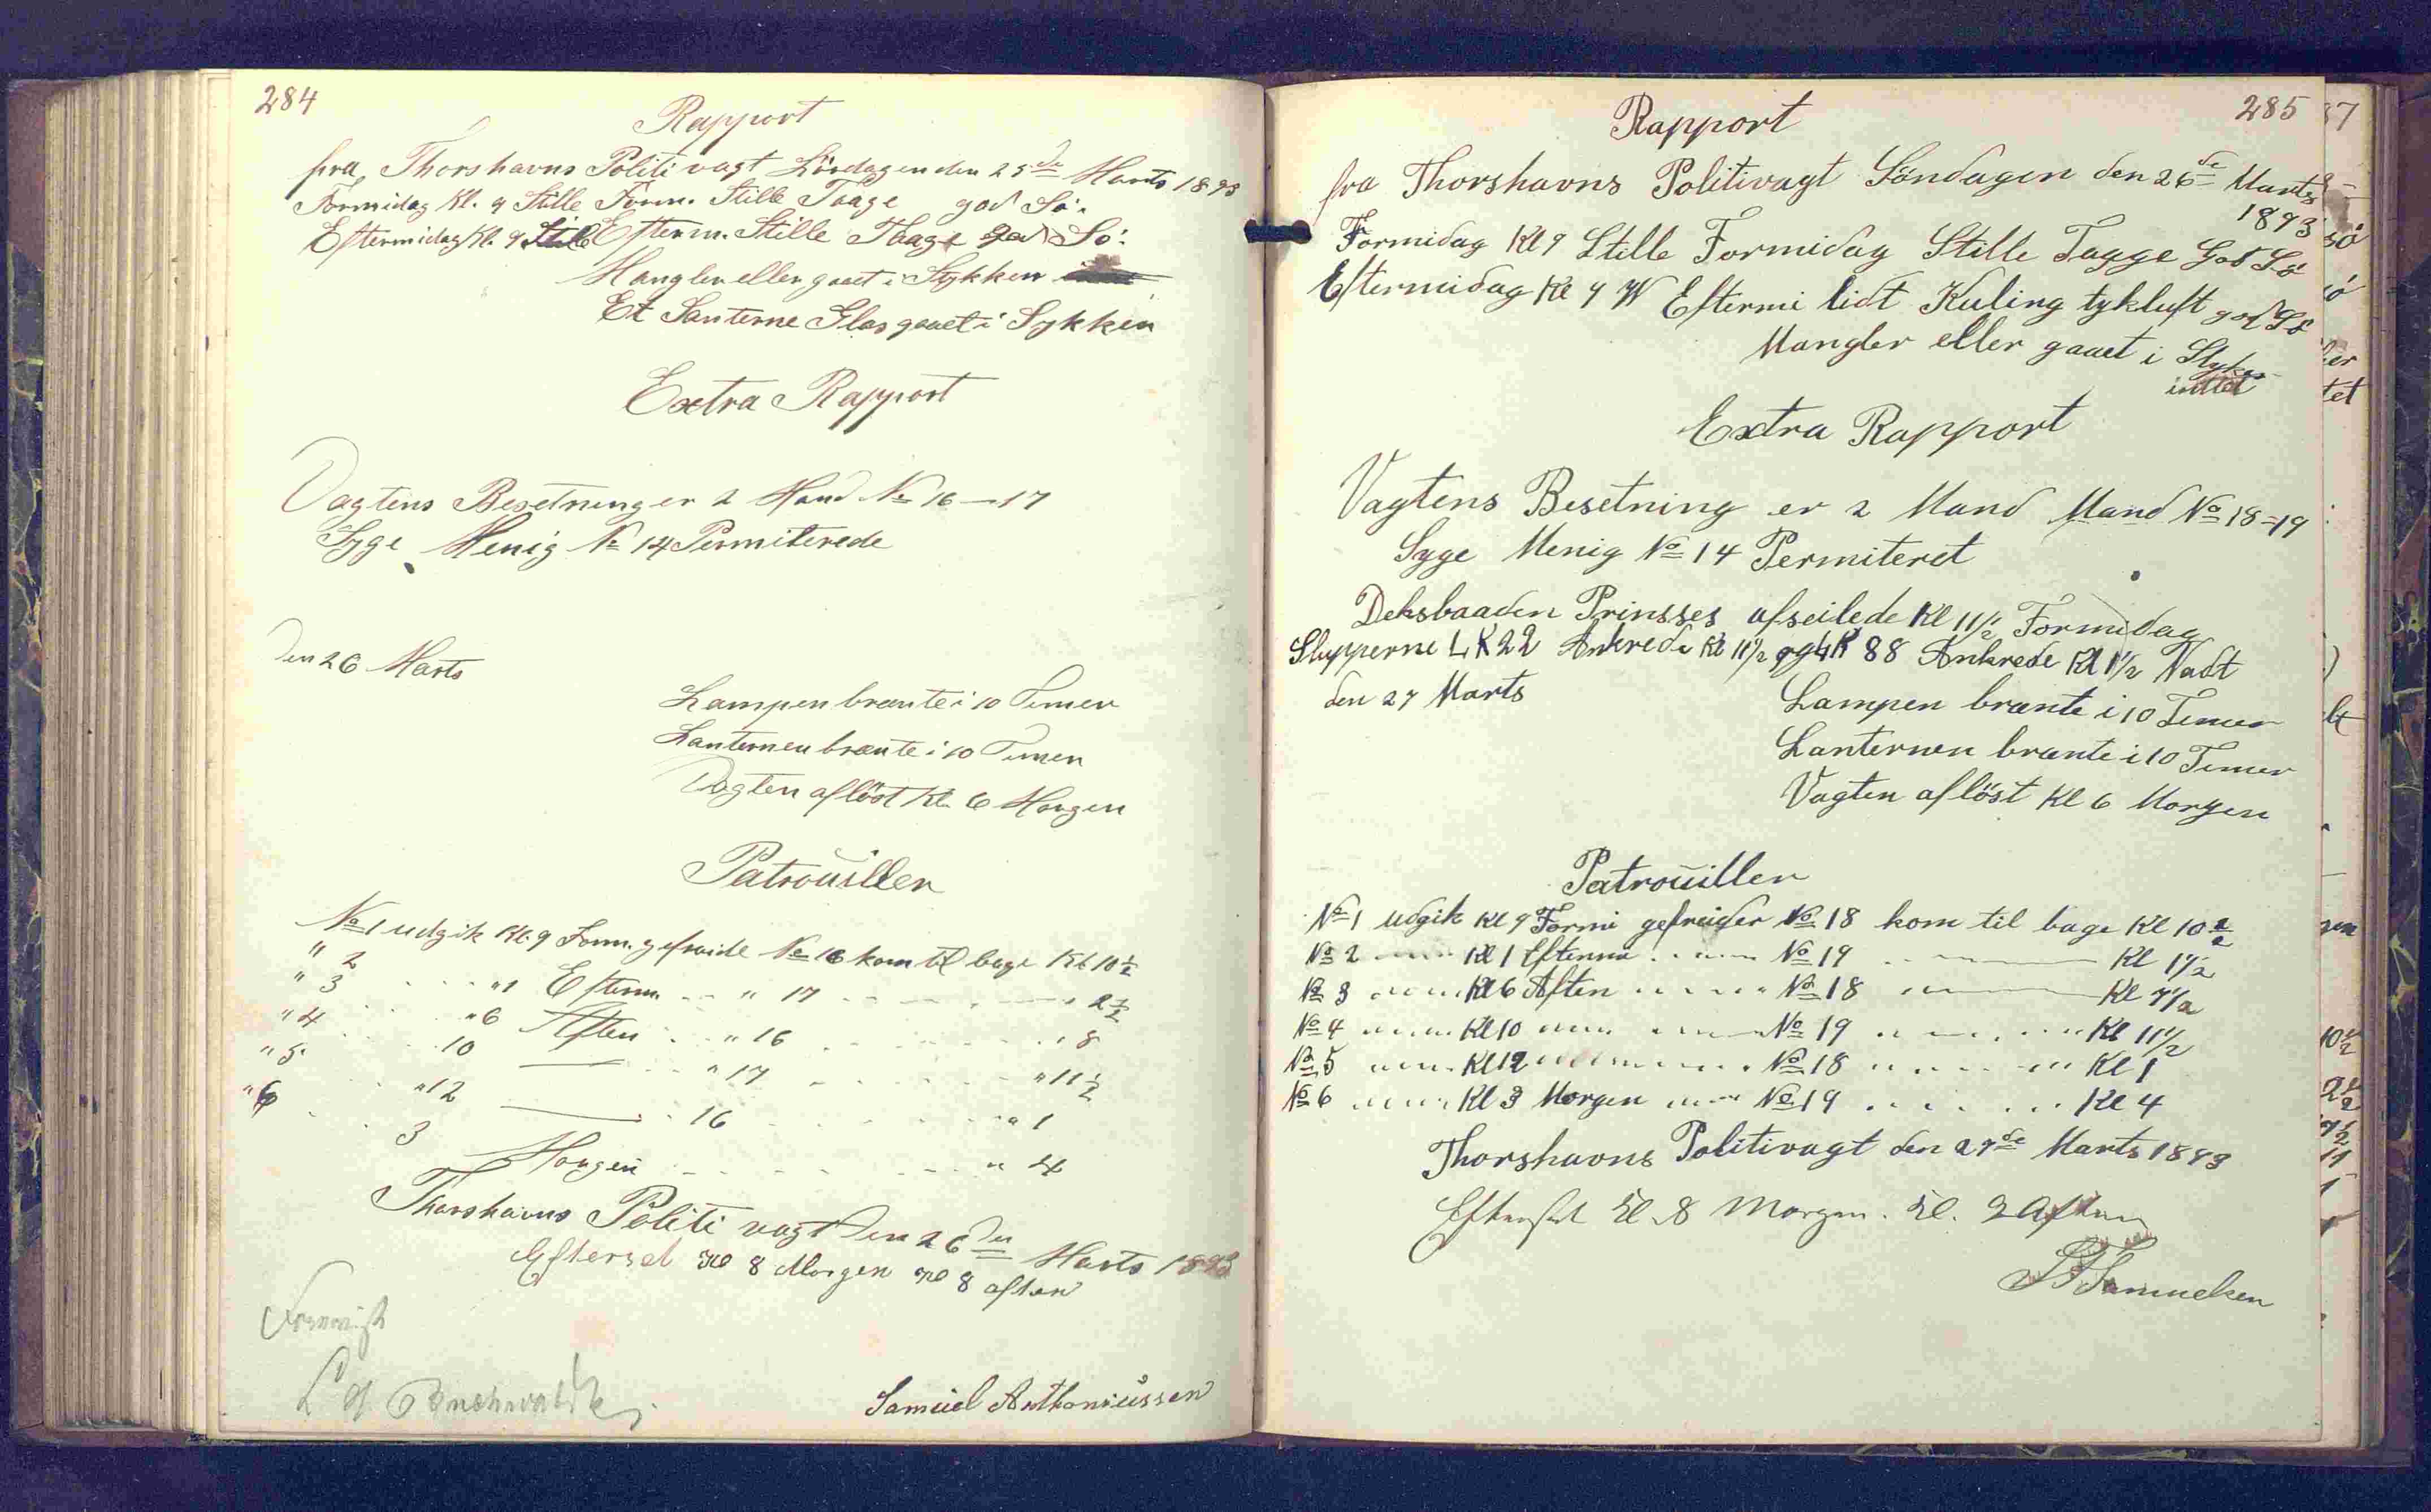 284
Rapport
fra Thorshavns Politivagt Lördagen den 25de Marts 1893
Formidag Kl. 9 Stille Form. Stille Taage god Sö.
Eftermidag Kl. 9 Stille Efterm. Stille Taage god Sö.
Mangler eller gaaet i Stykken
Et Lanterne Glas gaaet i Stykken
Extra Rapport
Vagtens Besetning er 2 Mand No 16 - 17
Syge Menig No 14 Permiterede
Den 26 Marts
Lampen brænte i 10 Timer
Lanternen brænte i 10 Timer
Vagten aflöst Kl. 6 Morgen
Patrouiller
No 1 udgik Kl. 9 Form. gefreide No 16 kom til bage Kl 10 1/2
" 2 " 1 Efterm. " 17 " 2 1/2
" 3 " 6 Aften " 16 " 8
" 4 10 — " 17 " 11 1/2
" 5 " 12 — 16 " 1
" 6 3 Morgen " 4
Thorshavns Politi vagt Den 26den Marts 1893
Efterset Kl 8 Morgen Kl 8 aften
Samuel Anthoniussen
285
Rapport
fra Thorshavns Politivagt Söndagen den 26de Marts
1893
Formidag Kl 9 Stille Formidag Stille Tagge God Sö
Eftermidag Kl 9 W Eftermi lidt Kuling tykluft god Sö
Mangler eller gaaet i Styker
intet
Extra Rapport
Vagtens Besetning er 2 Mand Mand No 18=19
Syge Menig No 14 Permiteret
Deksbaaden Prinsses afseilede Kl 11 1/2 Formidag
Slupperne LK 22 Ankrede Kl 11 1/2 og LK 88 Ankrede Kl 1 1/2 Nadt
den 27 Marts
Lampen brænte i 10 Timer
Lanternen brænte i 10 Timer
Vagten aflöst Kl 6 Morgen
Patrouiller
No 1 udgik Kl 9 Formi gefreider No 18 kom til bage Kl 10 1/2
No 2 Kl 1 Eftermi No 19 Kl 1 1/2
No 3 Kl 6 Aften No 18 Kl 7 1/2
No 4 Kl 10 No 19 Kl 11 1/2
No 5 Kl 12 No 18 Kl 1
No 6 Kl 3 Morgen No 19 Kl 4
Thorshavns Politivagt den 27de Marts 1893
Efterset Kl. 8 Morgen. Kl. 9 Aften
Samuelsen